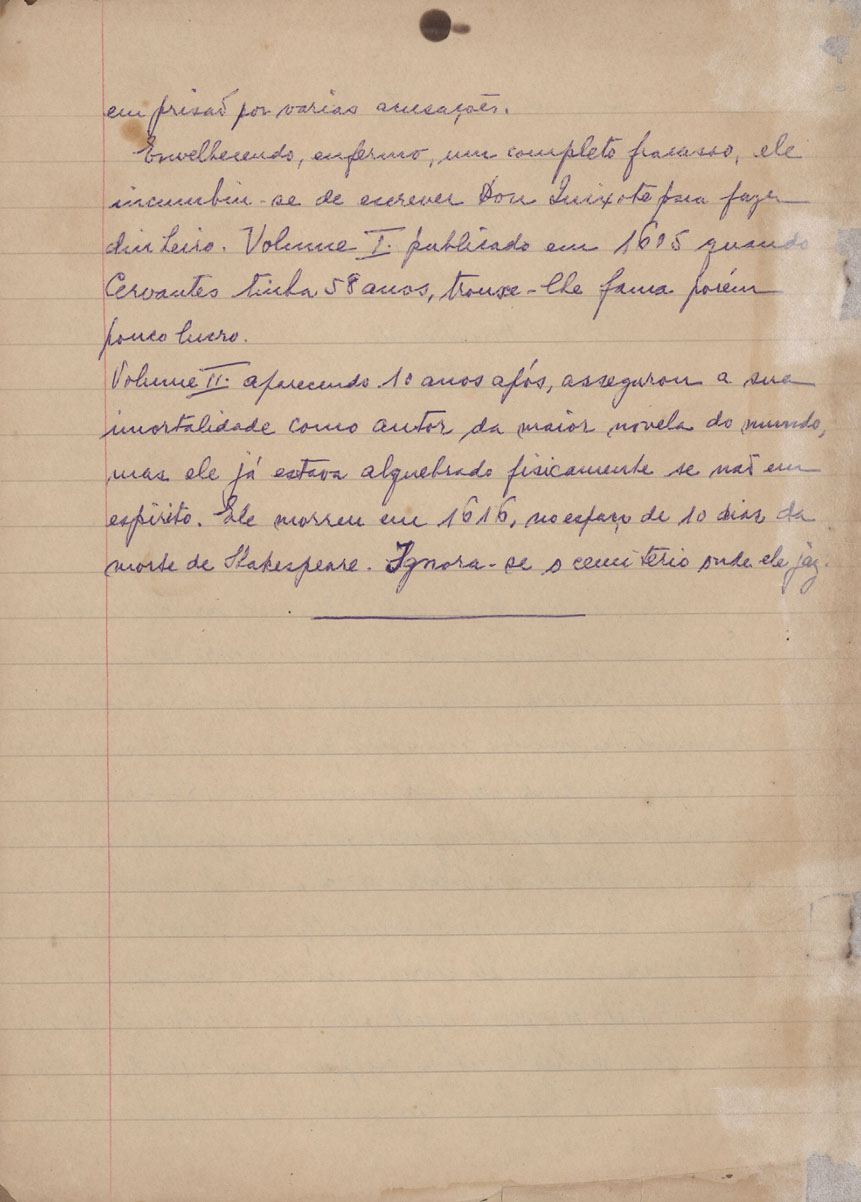 em prisaõ por varias acusações.
Envelhecendo, enfermo, um completo fracasso, ele
incumbiu-se de escrever Don Quixote para fazer
dinheiro. Volume I. publicado em 1605 quando
Cervantes tinha 58 anos, trouxe-lhe fama porém
pouco lucro.
Volume II. aparecendo 10 anos após, assegurou a sua
imortalidade como autor da maior novela do mundo,
mas ele já estava alquebrado fisicamente se naõ em
espírito. Ele morreu em 1616, no espaço de 10 dias da
morte de Shakespeare. Ignora-se o cemitério onde ele jaz.